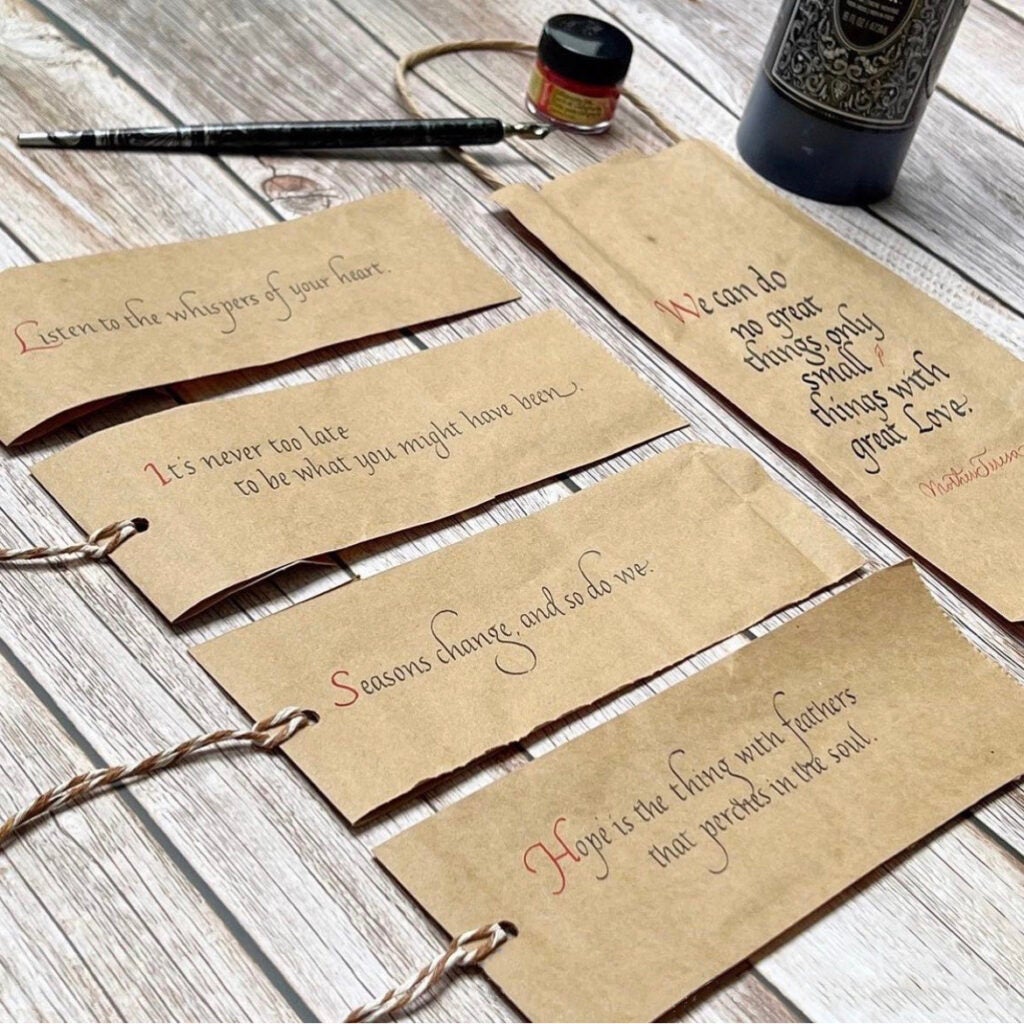 Listen to the whispers of your heart.
It's never too late
to be what you might have been.
Seasons change, and so do we.
Hope is the thing with feathers
that perches in the soul.
We can do
no great
things, only
small
things with
great Love.
Mother Teresa